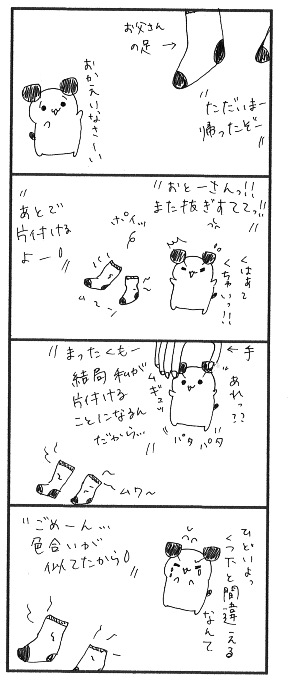 お父さん
の足 →
"ただいまー
帰ったぞー"
おかえりなさーい
"おとーさんっ!!
また抜ぎすててっ!!"
くはあて
くちゃいっ!!
ポイッ
"あとで
片付ける
よー"
ムワ〜
← 手
"あれっ??
"まったくもー
結局 私が
片付ける
ことになるん
だから…
ムギュッ
"バタバタ"
〜ムワ〜
ひどいよっ
くつ下と間違える
なんて
"ごめーん…
色合いが
似てたから"